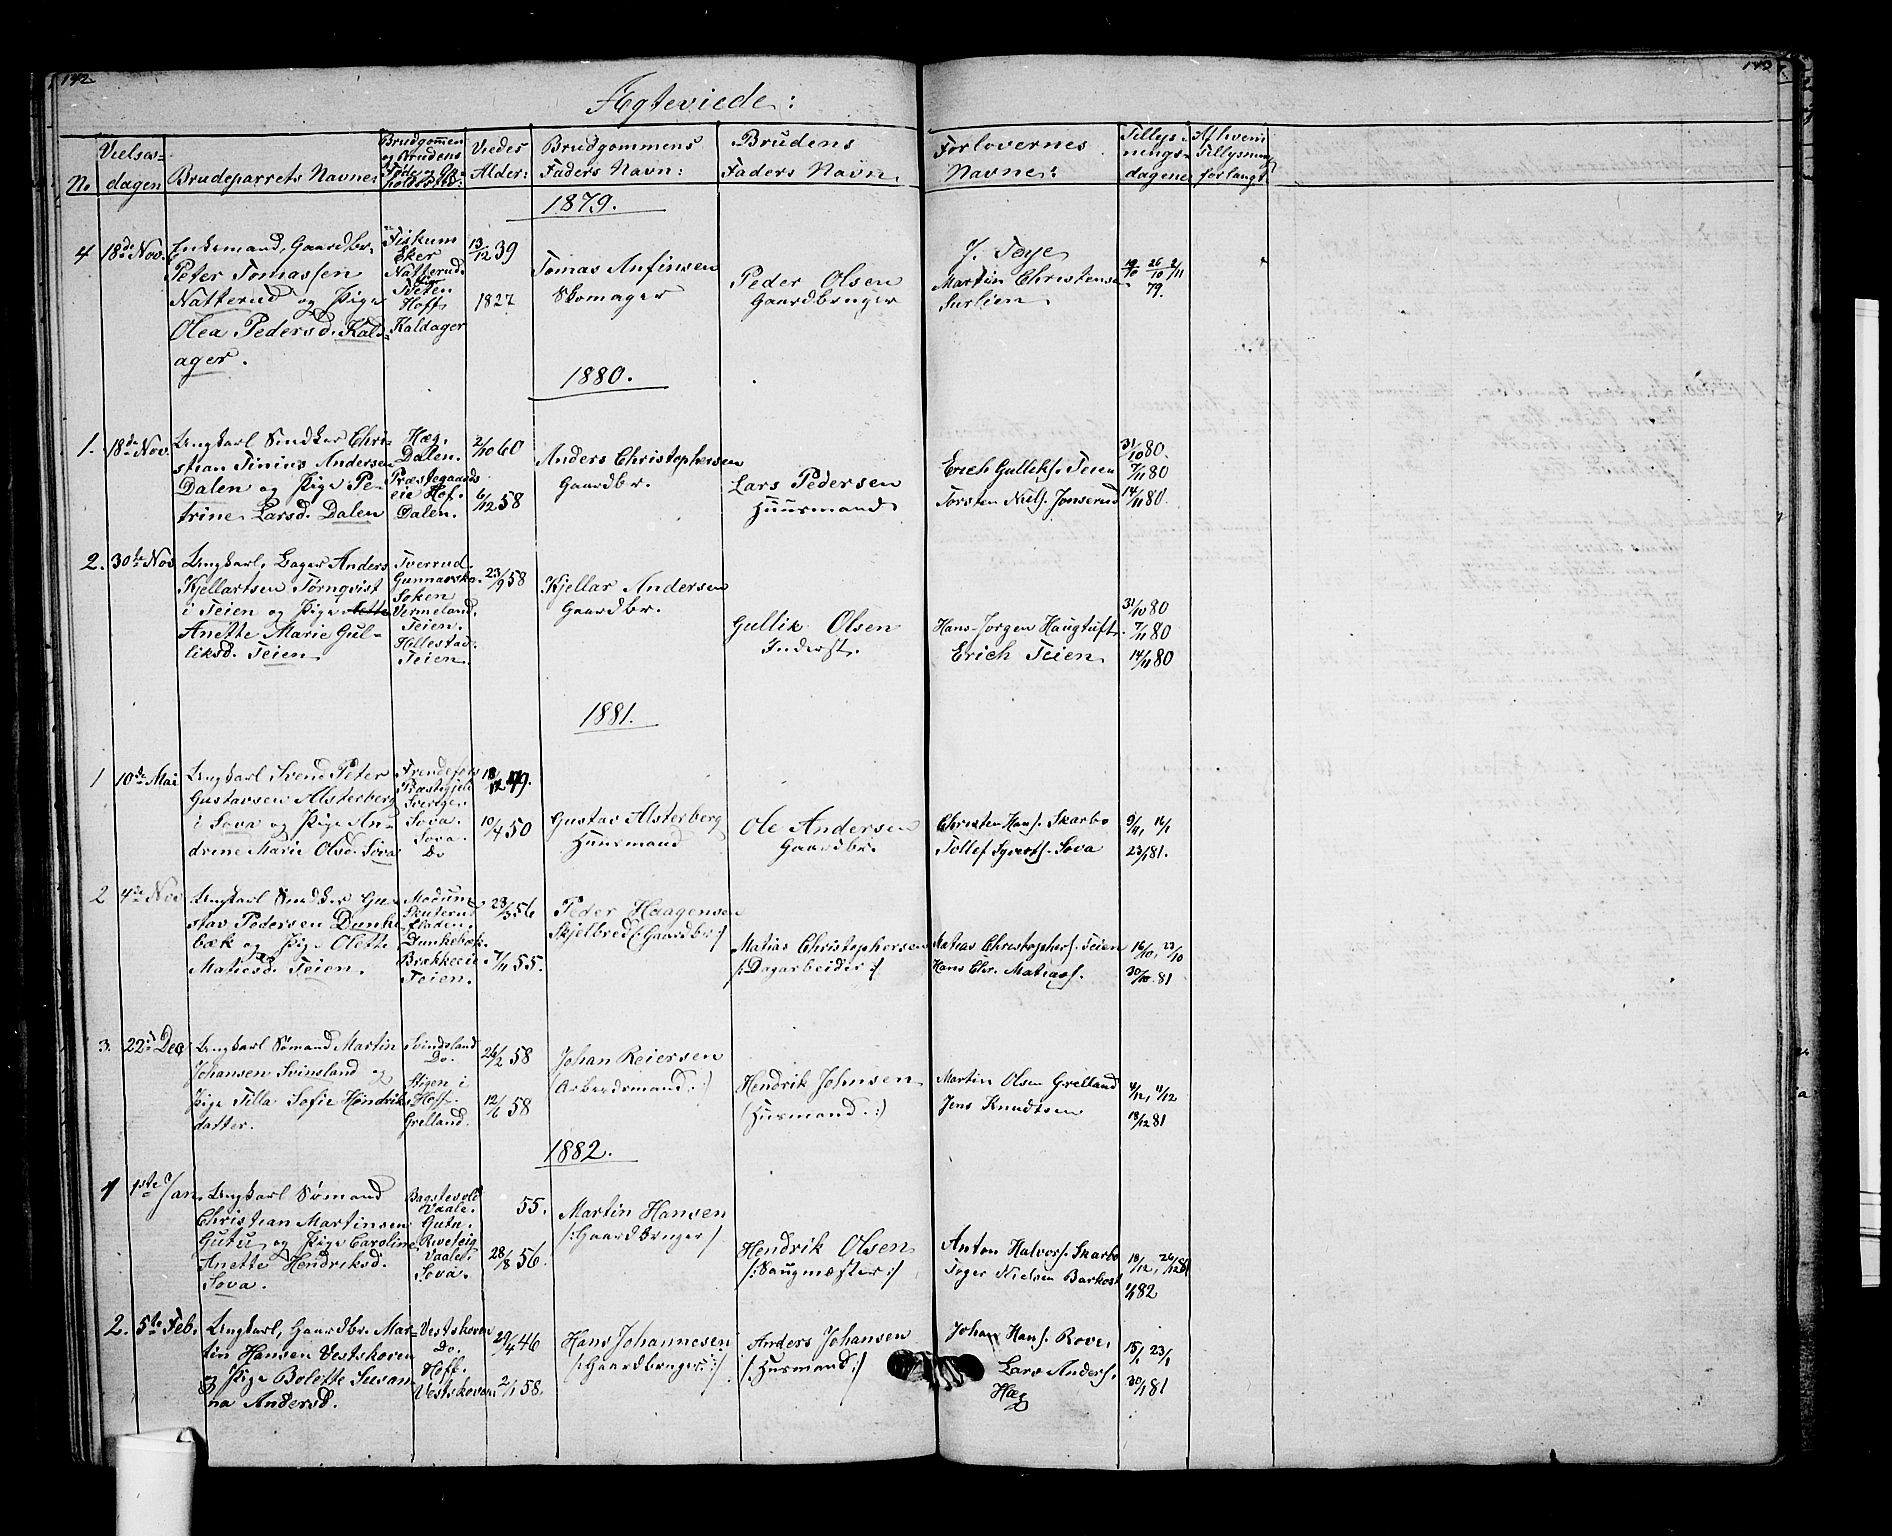 142
143
Ægteviede:
No
Vielses-
dagen
Brudeparrets Navne:
Brudgommens
og Brudens
Føde og Op-
holdssted:
Viedes
Alder:
Brudgommens
Faders Navn:
Brudens
Faders Navn.
Forlovernes
Navne:
Tillys-
nings-
dagene
Af hvem
Tillysning
forlangt
1879.
4
18de Nov.
Enkemand, Gaardbr.
Peter Tomassen
Natterud og Pige
Olea Pedersd. Kald-
ager.
Fiskum
Eker
Natterud.
Tveten
Hoff
Kaldager
13/12 39
1827
Tomas Anfinsen
Skomager
Peder Olsen
Gaardbruger
J. Foye
Martin Christensen
Surlien
19/10 26/10 2/11
79.
1880.
1.
18de Nov.
Ungkarl Snedker Chri-
stian Tinius Andersen
Dalen og Pige Pe-
trine Larsd. Dalen
Hæg.
Dalen.
Præstegaards
eie Hof.
Dalen.
2/10 60
6/12 58
Anders Christophersen
Gaardbr.
Lars Pedersen
Huusmand
Erich Gulliks. Teien
Torsten Niels. Jonserud
31/10 80.
7/11 80
14/11 80.
2.
30te Nov
Ungkarl, Bager Anders
Kjellartsen Tørnqvist
i Teien og Pige
Anette Marie Gul-
liksd. Teien
Tverrud.
Gunnarsko.
Soken
Vermeland.
Teien.
Hillestad.
Teien
23/9 58
Kjellar Andersen
Gaardbr.
Gullik Olsen
Inderst.
Hans Jørgen Haugtuft.
Erich Teien
31/10 80
7/11 80
14/11 80
1881.
1
10de Mai
Ungkarl Svend Peter
Gustavsen Alsterberg
i Sova og Pige An-
drine Marie Olsd. Sova
Frendefors
Præstegjeld
Sverige.
Sova.
Sova.
Do
49.
10/4 50
Gustav Alsterberg
Huusmand
Ole Andersen
Gaardbr.
Christen Hans. Skarbo
Tollef Syvers. Sova
9/1, 16/1
23/1 81.
2
4de Nov
Ungkarl Snedker Gu-
stav Pedersen Dunke-
bæk og Pige Olette
Matiesd. Teien.
Modum
Skuterud
Dunkebæk.
Brækkeeie
Teien.
23/3 56
7/11 55.
Peder Haagensen
Skjelbred (: Gaardbr:)
Matias Christophersen
/: Dagarbeider :/
Matias Christophers. Teien
Hans Chr. Matias.
16/10, 23/10
30/10. 81
3.
22de Dec
Ungkarl Sømand Martin
Johansen Svinsland og
Pige Tilla Sofie Hendrik
datter.
Svindsland
Do.
Stigen i
Hoff.
Grelland.
26/2 58
12/6 58
Johan Reiersen
(Arbeidsmand.:)
Hendrik Johnsen
(Husmand.:)
Martin Olsen Grelland
Jens Knudtsen
4/12, 11/12
18/12 81
1882.
1
1ste Jan.
Ungkarl Sømand
Christian Martinsen
Gutu og Pige Caroline
Anette Hendriksd.
Sova.
Bagstevold
Vaale.
Gutu.
Vaale.
Sova.
55.
28/8 56.
Martin Hansen
/: Gaardbruger/
Hendrik Olsen
/: Saugmester :/
Anton Halvors. Skarbo
Toger Nielsen Barkost
18/12, 26/12 81
1/1 82
2.
5te Feb.
Ungkarl, Gaardbr. Mar-
tin Hansen Vestskoven
og Pige Bolette Susan
na Andersd.
Vestskoven
Do.
Hoff.
Vestskoven
29/4 46
2/1 58.
Hans Johannesen
/: Gaardbruger :/
Anders Johansen
/: Husmand :/
Johan Hans. Rove
Lars Anders.
Hæg
15/1 23/1
30/1 81